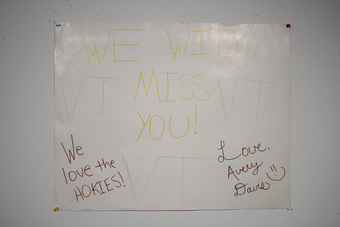 WE WILL
VT MISS VT
YOU!
We
love the
HOKIES!
VT
Love,
Avery
Davis